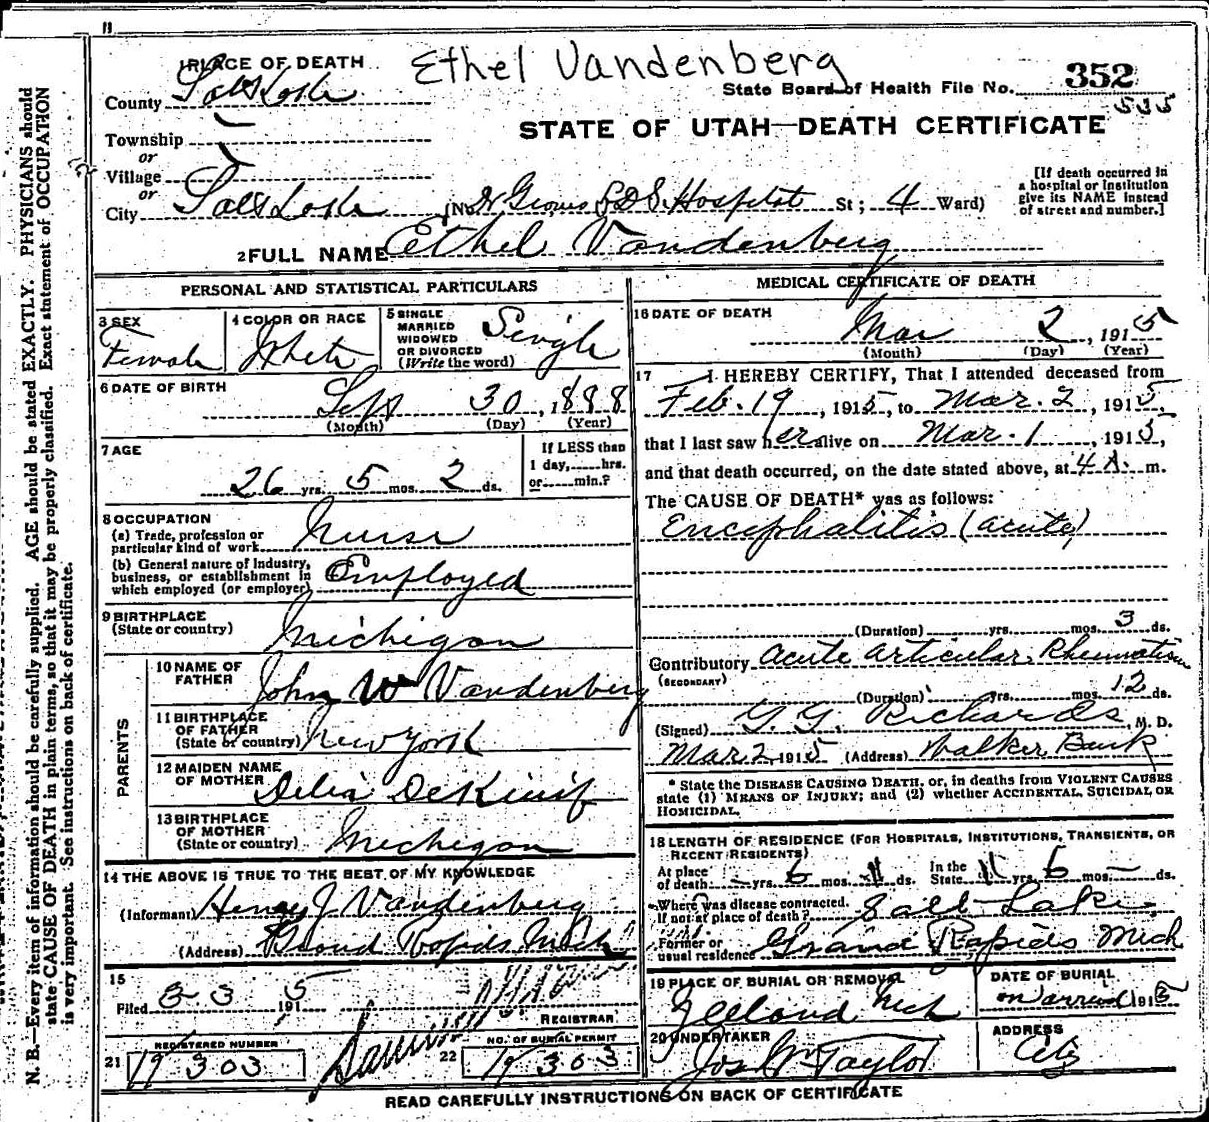 Ethel Vandenberg
1 PLACE OF DEATH
State Board of Health File No. 352
535
County Salt Lake
STATE OF UTAH—DEATH CERTIFICATE
Township
or
Village
or
City Salt Lake (No. Groves L D S. Hospital St; 4 Ward)
[If death occurred in a hospital or institution give its NAME instead of street and number.]
2 FULL NAME Ethel Vandenberg
PERSONAL AND STATISTICAL PARTICULARS
3 SEX
Female
4 COLOR OR RACE
White
5 SINGLE MARRIED WIDOWED OR DIVORCED (Write the word)
Single
6 DATE OF BIRTH
Sept 30, 1888
(Month) (Day) (Year)
7 AGE
26 yrs. 5 mos. 2 ds.
If LESS than 1 day,.....hrs. or.....min.?
8 OCCUPATION
(a) Trade, profession or particular kind of work Nurse
(b) General nature of Industry, business, or establishment in which employed (or employer) Employed
9 BIRTHPLACE
(State or country) Michigan
PARENTS
10 NAME OF FATHER John W Vandenberg
11 BIRTHPLACE OF FATHER (State or country) New York
12 MAIDEN NAME OF MOTHER Delia
13 BIRTHPLACE OF MOTHER (State or country) Michigan
14 THE ABOVE IS TRUE TO THE BEST OF MY KNOWLEDGE
(Informant) Henry J Vandenberg
(Address) Grand Rapids Mich
15
Filed 3 3 1915
REGISTRAR
21 REGISTERED NUMBER
19 303
22 NO. OF BURIAL PERMIT
19 303
MEDICAL CERTIFICATE OF DEATH
16 DATE OF DEATH
Mar 2, 1915
(Month) (Day) (Year)
17 I HEREBY CERTIFY, That I attended deceased from
Feb. 19, 1915, to Mar. 2, 1915,
that I last saw her alive on Mar. 1, 1915,
and that death occurred, on the date stated above, at 4 A. m.
The CAUSE OF DEATH* was as follows:
Encephalitis (acute)
(Duration) yrs. mos. 3 ds.
Contributory Acute Articular Rheumatism
(SECONDARY)
(Duration) yrs. mos. 12 ds.
(Signed) G. G. Richards, M. D.
Mar 2, 1915 (Address) Walker Bank
* State the DISEASE CAUSING DEATH, or, in deaths from VIOLENT CAUSES
state (1) MEANS OF INJURY; and (2) whether ACCIDENTAL, SUICIDAL, OR
HOMICIDAL.
18 LENGTH OF RESIDENCE (FOR HOSPITALS, INSTITUTIONS, TRANSIENTS, OR
RECENT RESIDENTS)
At place of death — yrs. 6 mos. ds. In the State yrs. 6 mos. — ds.
Where was disease contracted. If not at place of death? Salt Lake
Former or usual residence Grand Rapids Mich
19 PLACE OF BURIAL OR REMOVAL
Zeeland Mich
DATE OF BURIAL
on arrival 1915
20 UNDERTAKER
Jos Wm Taylor
ADDRESS
City
READ CAREFULLY INSTRUCTIONS ON BACK OF CERTIFICATE
N. B.—Every item of information should be carefully supplied. AGE should be stated EXACTLY. PHYSICIANS should
state CAUSE OF DEATH in plain terms, so that it may be properly classified. Exact statement of OCCUPATION
is very important. See instructions on back of certificate.